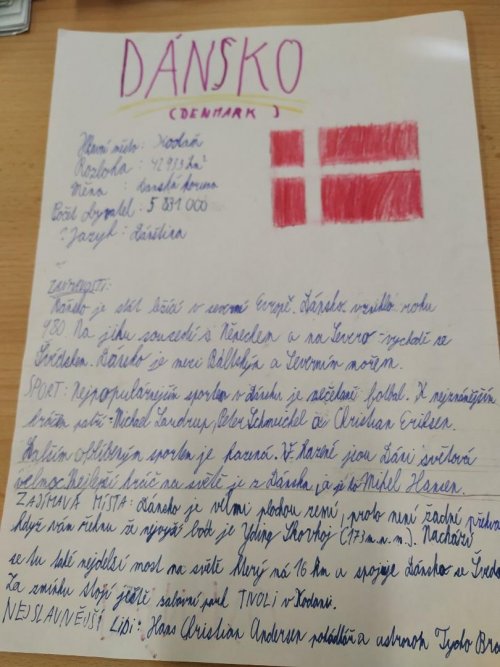 DÁNSKO
(DENMARK)
Hlavní město: Kodaň
Rozloha : 42 933 km²
Měna : Danská koruna
Počet obyvatel : 5 831 000
Jazyk : Dánština
ZAJÍMAVOSTI:
Dánsko je stát ležící v severní Evropě. Dánsko vzniklo roku
980 Na jihu sousedí s Německem a na Severo-východě se
Švédskem. Dánsko je mezi Baltským a Severním mořem.
SPORT: Nejpopulárejším sportem v Dánsku je fotbal. K nejznámějším
hráčům patří Michael Laudrup, Peter Schmeichel či Christian Eriksen.
Dalším oblíbeným sportem je házená. V házené jsou Dáni světová
velmoc. Nejlepší hráč na světě je z Dánska a je to Mikel Hansen.
ZAJÍMAVÁ MÍSTA: Dánsko je velmi plochou zemí, proto není žádné
Když vám řeknu že nejvyšší bod je Yding Skovhoj (173 m.n.m.). Nachází
se tu také nejdelší most na světě který má 16 km a spojuje Dánsko se
Za zmínku stojí ještě zábavní park TIVOLI v Kodani.
NEJSLAVNĚJŠÍ Lidi: Hans Christian Andersen pohádkář a astronom Tycho